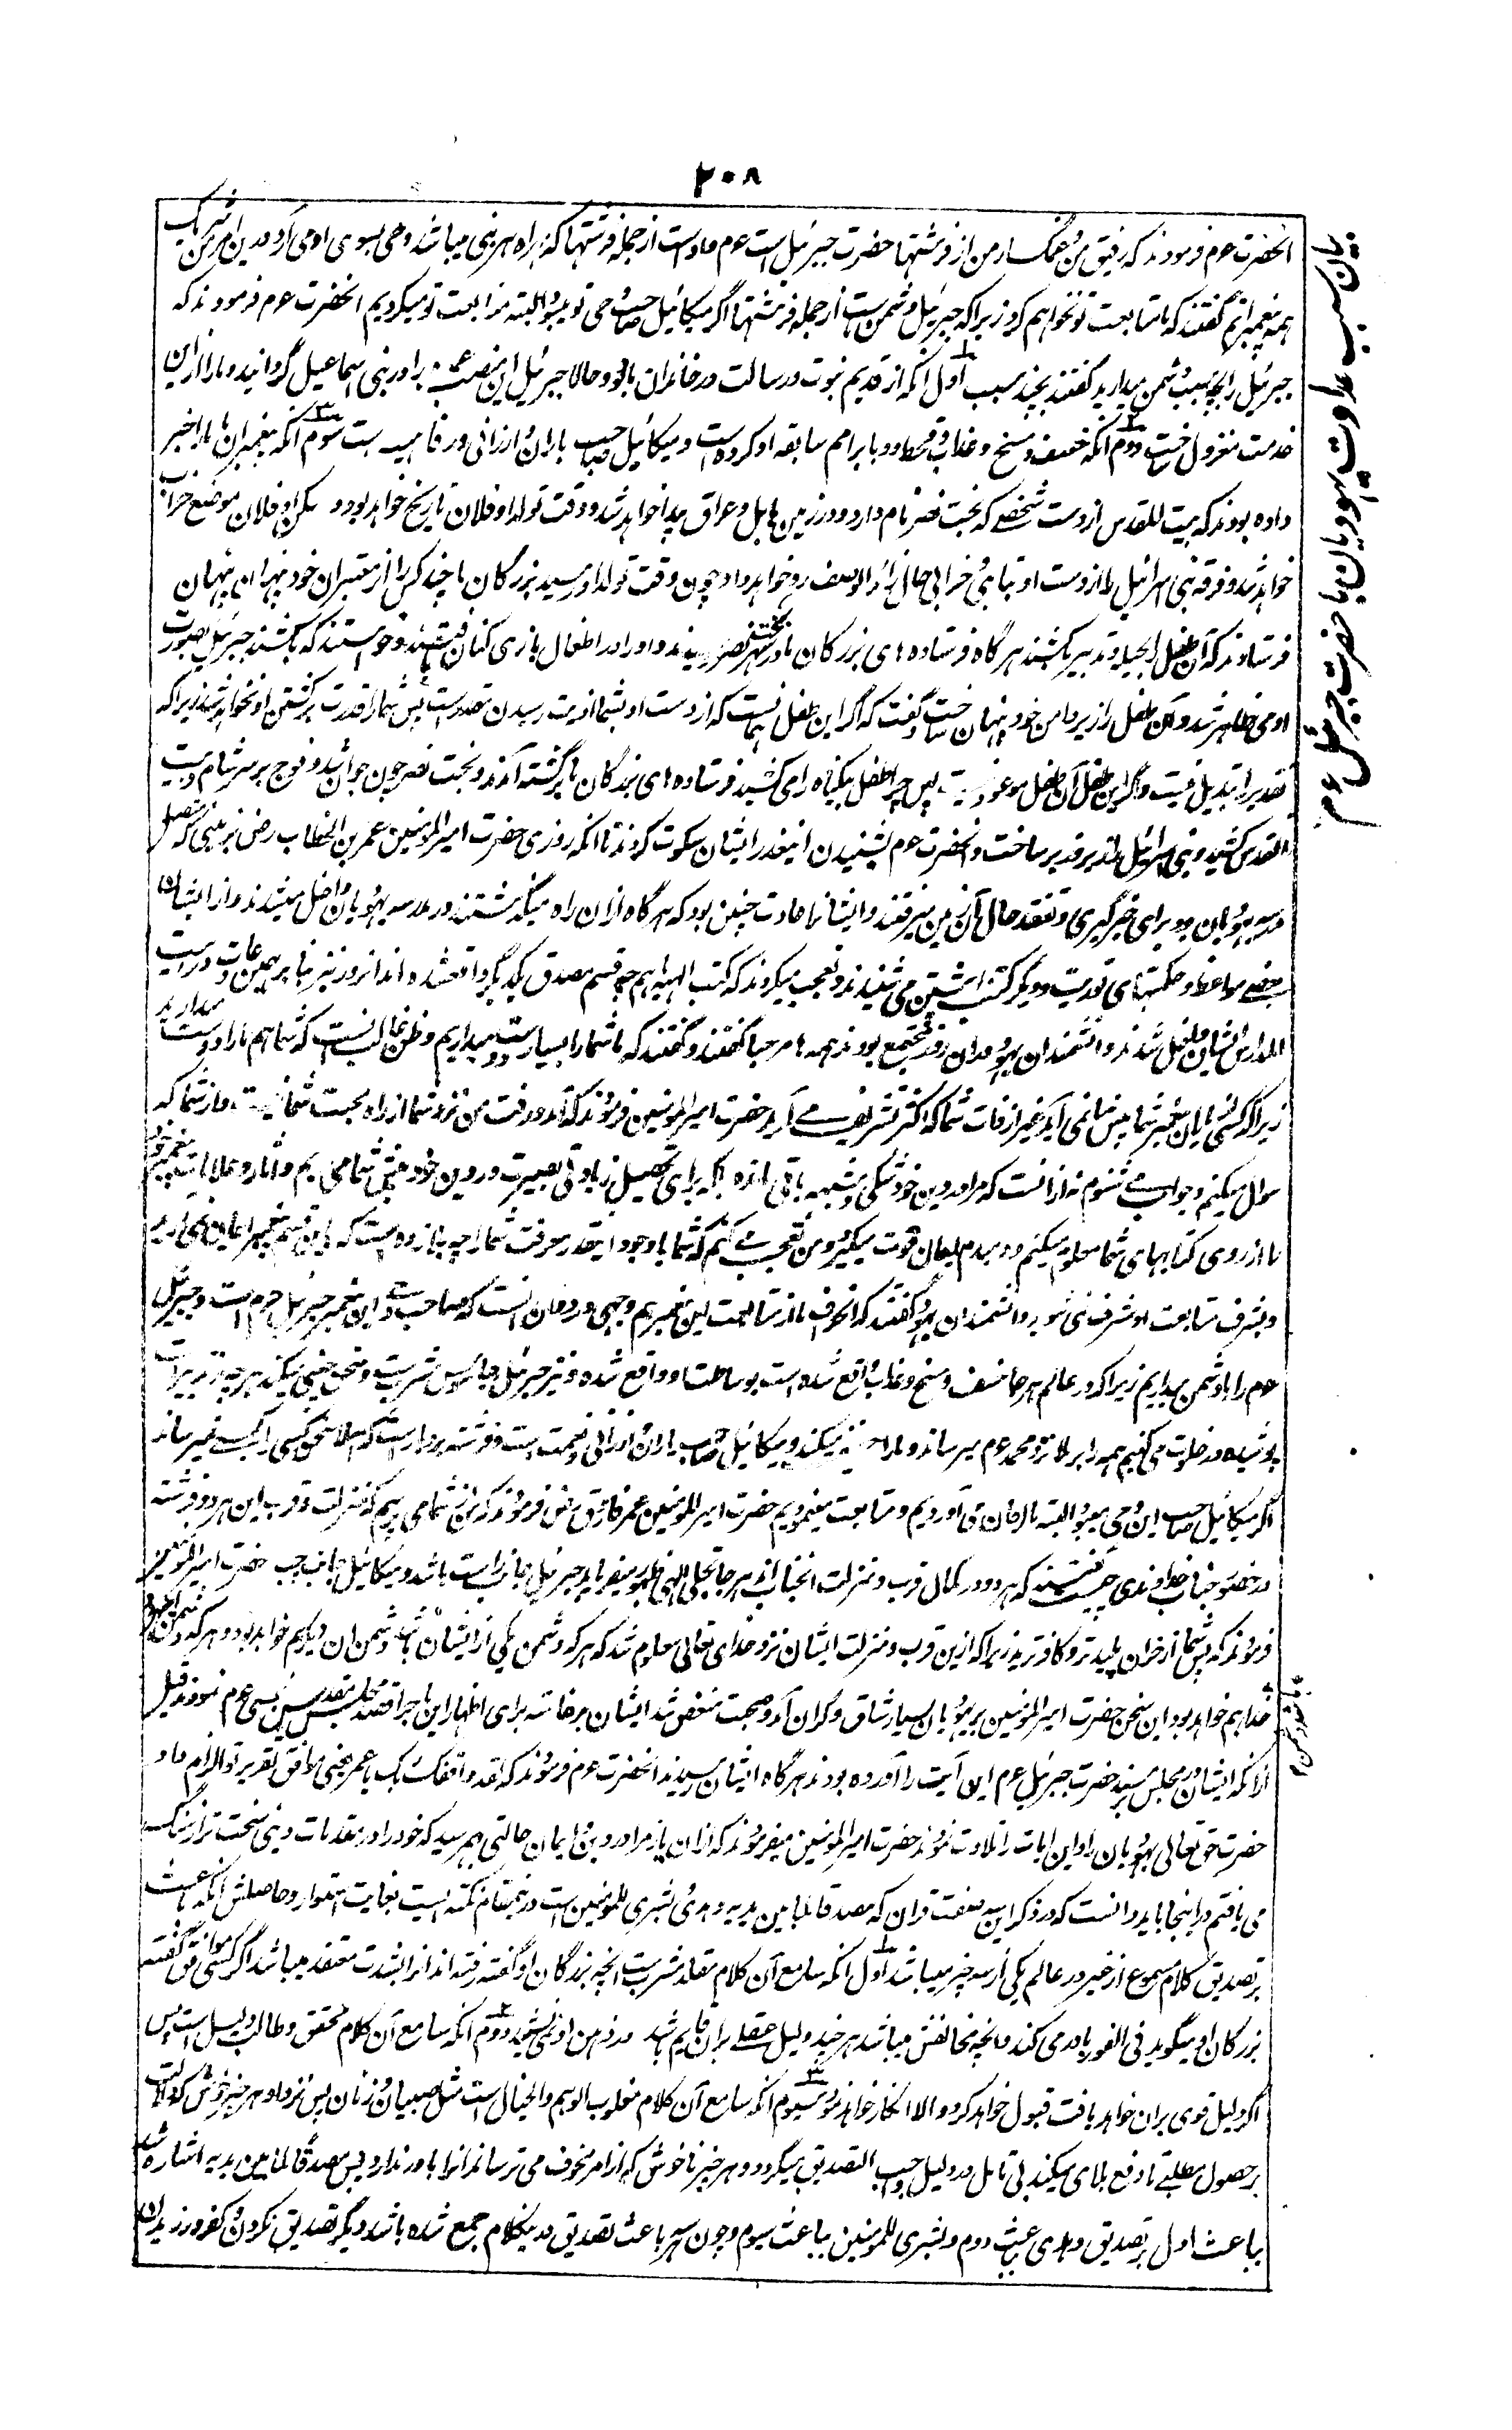 ۲۰۸
انحضرت عوم فرمودند که رفیق من و غمگسار من از فرشتها حضرت جبرئیل است عوم ما دست از جمله فرشتها که همراه هر نبی میباشد و وحی بسوی او می آرد و درین امر من شریک
همه پیغمبرانم گفتند که ما متابعت تو نخواهیم کرد زیرا که جبرئیل دشمن ماست از جمله فرشتها اگر میکائیل صاحب وحی تو میبود البته متابعت تو میکردیم انحضرت عوم فرمودند که
جبرئیل را بچه سبب دشمن میدارید گفتند بچند سبب اول آنکه از قدیم نبوت و رسالت در خاندان ما بود و حالا جبرئیل این منصب را در بنی اسماعیل گردانید و ما را ازین
خدمت معزول ساخت دوم آنکه خسف و مسخ و عذاب و قحط و وبا بر امم سابقه او کرده است و میکائیل صاحب باران و ارزانی و رفاهیت است سوم آنکه پیغمبران ما ما را خبر
داده بودند که بیت المقدس از دست شخصی که بخت نصر نام دارد و در زمین بابل و عراق پیدا خواهد شد و وقت تولد او فلان تاریخ خواهد بود و مسکن او فلان موضع خراب
خواهد شد و فرقه بنی اسرائیل را از دست او تباهی و خرابی حال زائد الوصف رو خواهد داد چون وقت تولد او رسید بزرگان ما چند کس را از معتبران خود پنهان
فرستادند که آن طفل را بحیله و تدبیر بکشند هرگاه فرستاده های بزرگان ما در شهر بخت نصر رسیدند و او را در اطفال بازی کنان یافتند و خواستند که بکشند جبرئیل بصورت
آدمی ظاهر شد و آن طفل را زیر دامن خود پنهان ساخت و گفت که اگر این طفل همانست که از دست او بشما اذیت رسیدن مقدر است پس شما را قدرت بر کشتن او نخواهد شد زیرا که
تقدیر را تبدیل نیست و اگر این طفل آن طفل موعود نیست پس چرا طفل بیگناه را می کشید فرستاده های بزرگان ما برگشته آمدند و بخت نصر چون جوان شد و فوج بر سر شام و بیت
المقدس کشید و بنی اسرائیل را زیر و زبر ساخت و انحضرت عوم بشنیدن اینقدر از ایشان سکوت کردند تا آنکه روزی حضرت امیر المومنین عمر بن الخطاب رض بر زمینی که متصل
مدرسه یهودیان بود برای خبرگیری و تفقد حال آن زمین میرفتند و ایشان را عادت چنین بود که هرگاه ازان راه میگذشتند در مدرسه یهودیان داخل میشدند و از ایشان
بعضی مواعظ و حکمتهای توریت و دیگر کتب پیشین می شنیدند و تعجب میکردند که کتب الهیه با هم چه قسم مصدق یکدیگر واقع شده اند انروز نیز بنا بر همین عادت در بیت
المدارس ایشان داخل شدند دانشمندان یهود دران وقت مجتمع بودند همه ها مرحبا گفتند و گفتند که ما شما را بسیار دوست میداریم و ظن غالب آنست که شما هم ما را دوست میدارید
زیرا که کسی از یاران پیغمبر شما پیش ما نمی آید غیر از ذات شما که اکثر تشریف می آرید حضرت امیر المومنین فرمودند که آمد و رفت من نزد شما از راه محبت شما نیست و از شما که
سوال میکنم و جواب می شنوم نه از آنست که مرا در دین خود شکی و شبهه باقی مانده بلکه برای تحصیل زیادتی بصیرت در دین خود پیش شما می آیم و آثار و علامات پیغمبر خود
را از روی کتابهای شما معلوم میکنم و دمبدم ایمان قوت میگیرد و من تعجب می کنم که شما با وجود اینقدر معرفت شما را چه باز زده است که باین قسم پیغمبر ایمان نمی آرید
و بشرف متابعت او مشرف نمی شوید دانشمندان یهود گفتند که انحراف ما از متابعت این پیغمبر هم وجهی دارد و آن آنست که صاحب وحی این پیغمبر جبرئیل عوم است و جبرئیل
عوم را ما دشمن میداریم زیرا که در عالم هرجا خسف و مسخ و عذاب واقع شده است بوساطت او واقع شده و نیز جبرئیل جاسوس شریر است و سخن چینی میکند هر چه تدبیرات
پوشیده در خلوت می کنیم همه را برملا نزد محمد عوم میرساند و ما را میکند و میکائیل صاحب باران و ارزانی و نعمت است و فرشته بردبار است که اصلا سخن کسی را بکسی نمیرساند
اگر میکائیل صاحب این وحی میبود البته ما ایمان می آوردیم و متابعت مینمودیم حضرت امیر المومنین عمر فاروق رض فرمودند که من از شما می پرسم که منزلت و قرب این هر دو فرشته
در حضور جناب خداوندی چیست گفتند که هر دو در کمال قرب و منزلت انجناب اند هرجا تجلی الهی ظهور میفرماید جبرئیل بجانب راست باشد و میکائیل بجانب چپ حضرت امیر المومنین
فرمودند که پس شما از خران پلیدتر و کافرترید زیرا که ازین قرب و منزلت ایشان نزد خدای تعالی معلوم شد که هر که دشمن یکی از ایشان باشد دشمن آن دیگر هم خواهد بود و هر که دشمن
خدا هم خواهد بود این سخن حضرت امیر المومنین بر یهودیان بسیار شاق و گران آمد و صحبت منغص شد ایشان برخاسته برای اظهار این ماجرا قصد مجلس مقدس نبوی عوم نمودند قبل
از آنکه ایشان در مجلس برسند حضرت جبرئیل عوم این آیت را آورده بودند هرگاه ایشان رسیدند انحضرت عوم فرمودند که لقد وافقک ربک یا عمر یعنی موافق تقریر تو الزام داد
حضرت حق تعالی یهودیان را و این آیات را تلاوت نمودند حضرت امیر المومنین میفرمودند که ازان باز مرا در دین و ایمان حالتی بهم رسید که خود را در مقدمات دینی سخت تر از سنگ
می یافتم درینجا باید دانست که در ذکر این سه صفت قران که مصدقا لما بین یدیه و هدی و بشری للمومنین است درین مقام نکته ایست بغایت استوار و حاصلش آنکه باعث
بر تصدیق کلام مسموع از غیر در عالم یکی از سه چیز میباشد اول آنکه سامع آن کلام مقلد مشرب است انچه بزرگان او گفته رفته اند انرا بشدت معتقد میباشد اگر کسی موافق گفته
بزرگان او میگوید فی الفور باور می کند و انچه مخالفش میباشد هر چند دلیل عقلی بران قایم باشد در ذهن او نمی نشیند دوم آنکه سامع آن کلام محقق و طالب دلیل است پس
اگر دلیل قوی بران خواهد یافت قبول خواهد کرد و الا انکار خواهد نمود سیوم آنکه سامع آن کلام مغلوب الوهم و الخیال است مثل صبیان و زنان پس نزد او هر خبر خوش که دلالت
بر حصول مطلبی تا دفع بلای میکند بی تامل در دلیل واجب التصدیق میگردد و هر خبر ناخوش که از امر مخوف می ترساند انرا باور ندارد پس مصدقا لما بین یدیه اشاره شد
بباعث اول بر تصدیق و هدی بباعث دوم و بشری للمومنین بباعث سیوم و چون هر سه باعث تصدیق در یک کلام جمع شده باشد دیگر تصدیق نکردن و کفر ورزیدن
بیان سبب عداوت یهودیان با حضرت جبرئیل عوم